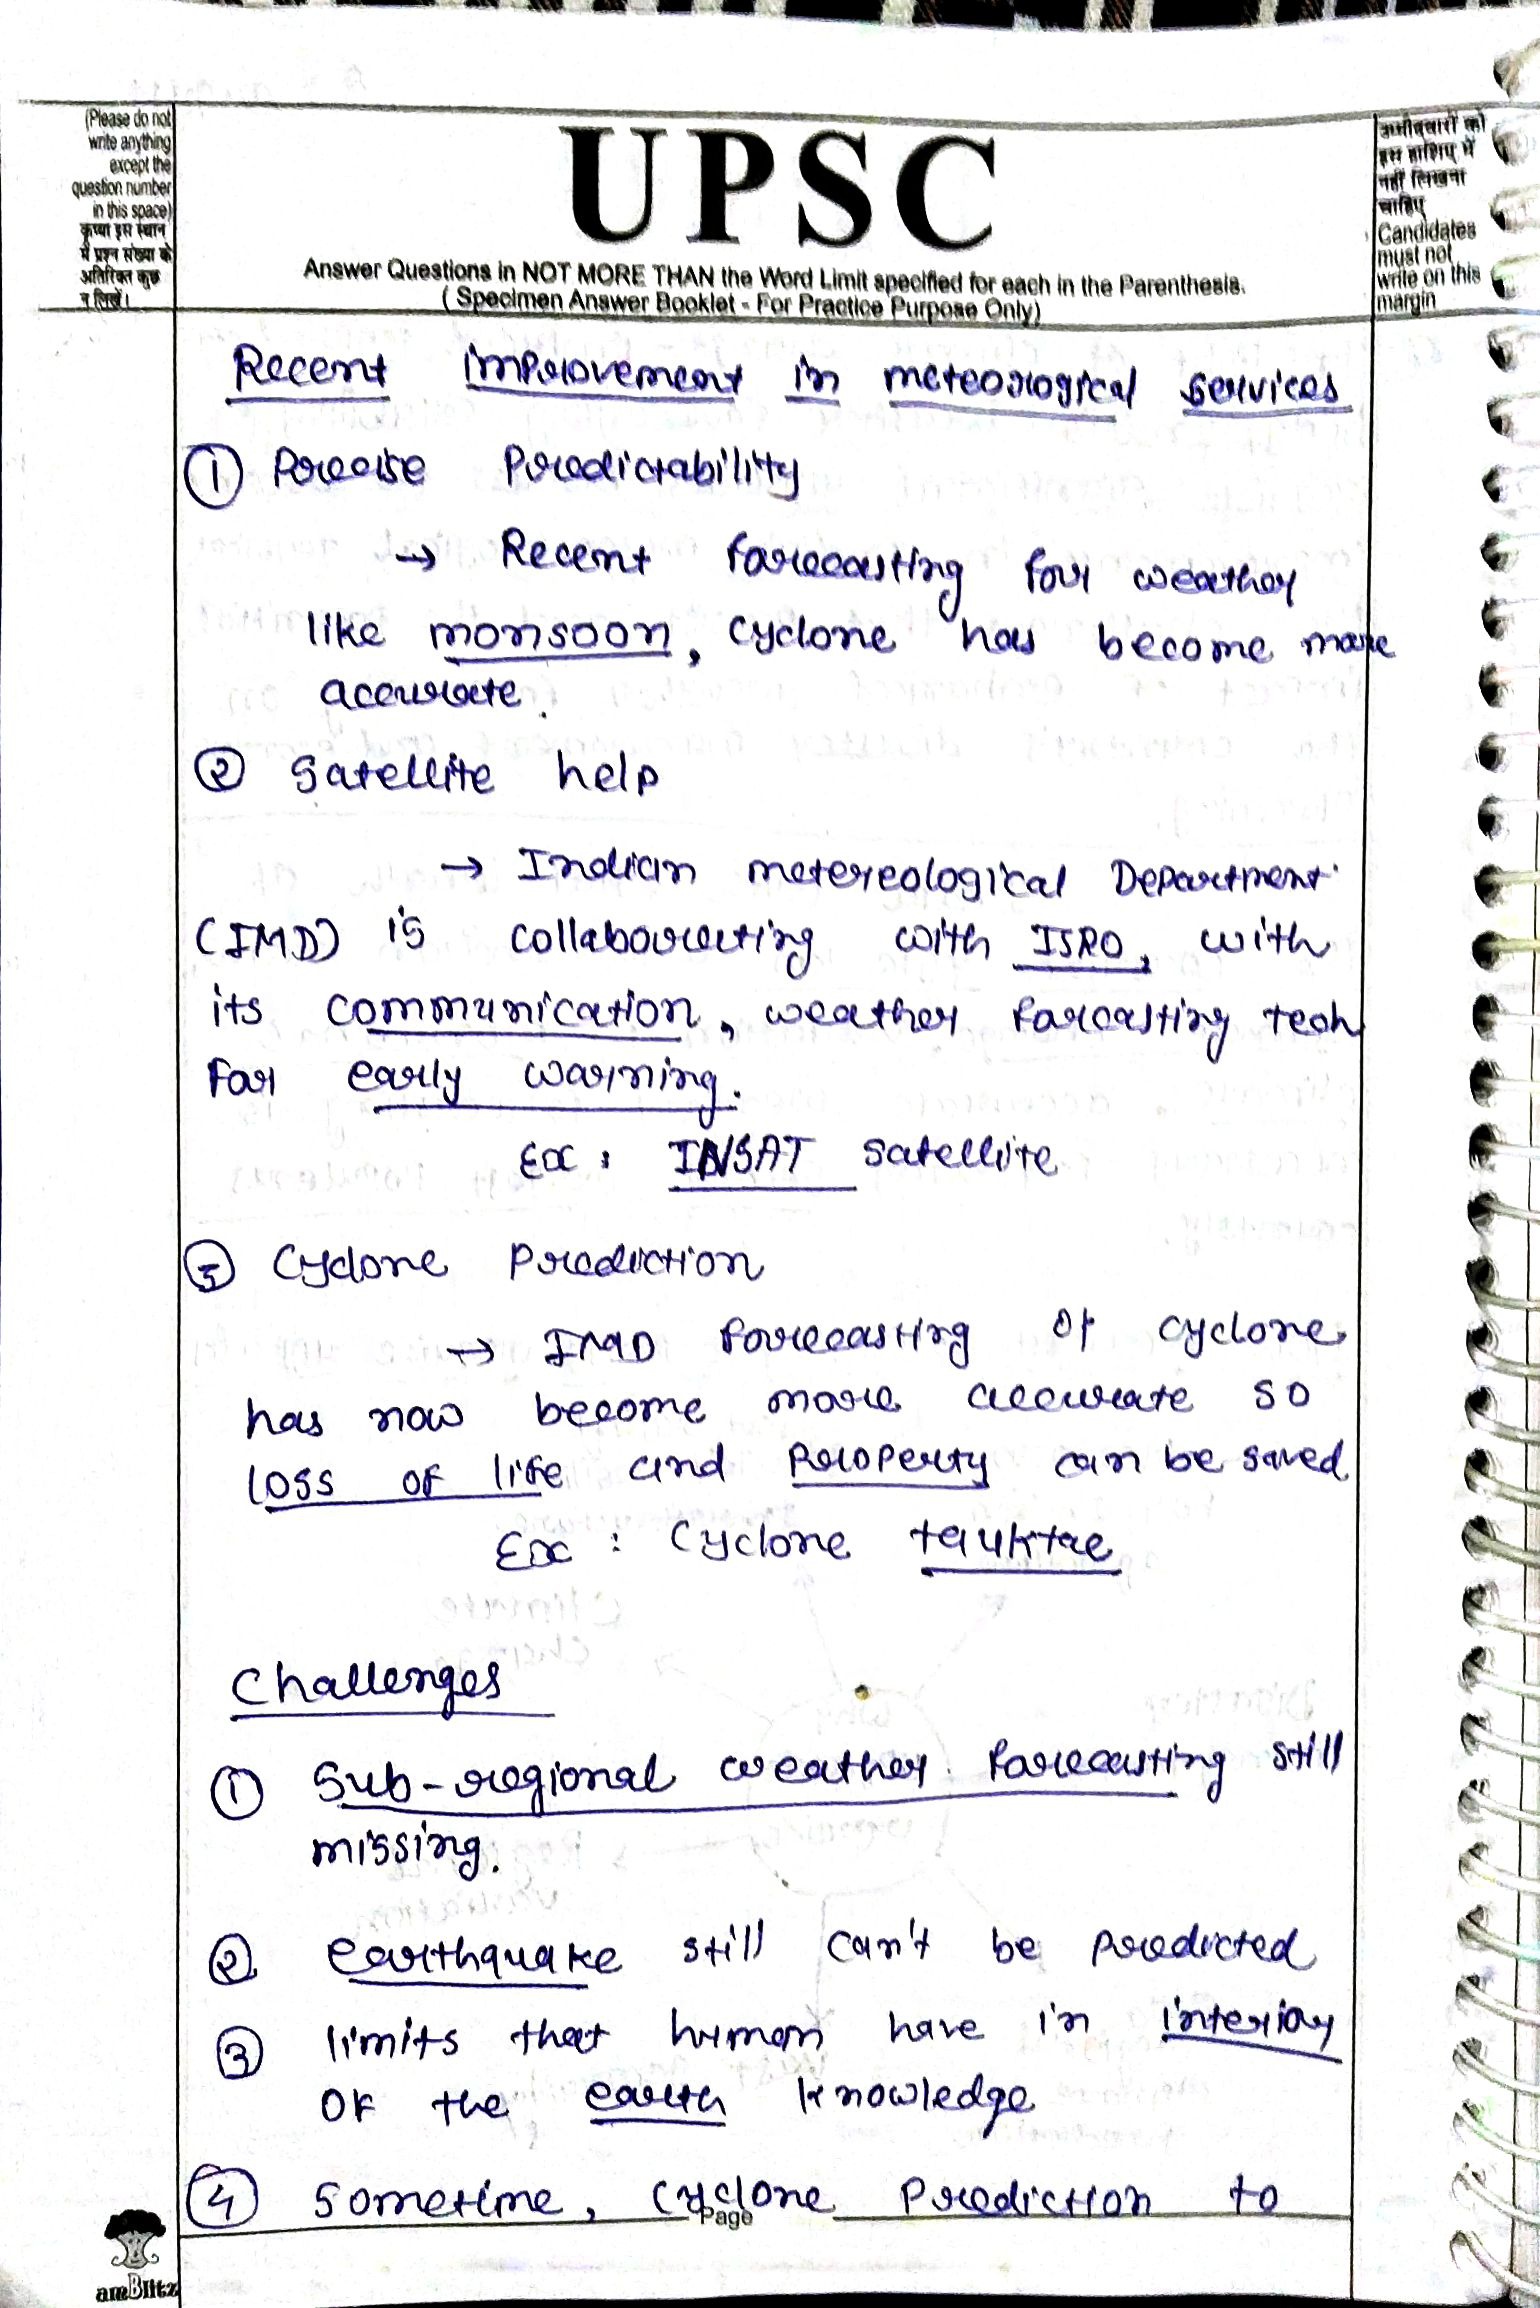 (Please do not
write anything
except the
question number
in this space)
कृपया इस स्थान
में प्रश्न संख्या के
अतिरिक्त कुछ
न लिखें।
UPSC
Answer Questions in NOT MORE THAN the Word Limit specified for each in the Parenthesis.
( Specimen Answer Booklet - For Practice Purpose Only)
उम्मीदवारों को
इस हाशिए में
नहीं लिखना
चाहिए
Candidates
must not
write on this
margin
Recent improvement in meteorogical services
① Precise Predictability
→ Recent forecasting for weather
like monsoon, cyclone has become more
accurate.
② Satellite help
→ Indian metereological Department
(IMD) is collaborating with ISRO, with
its communication, weather forcasting tech
for early warning.
Ex : INSAT satellite
③ Cyclone Prediction
→ IMD forecasting of cyclone
has now become more accurate so
loss of life and Property can be saved
Ex : Cyclone tauktae
Challenges
① Sub-regional weather forecasting still
missing.
② earthquake still can't be predicted
③ limits that human have in interior
of the earth knowledge
④ Sometime, cyclone prediction to
Page
amBlitz